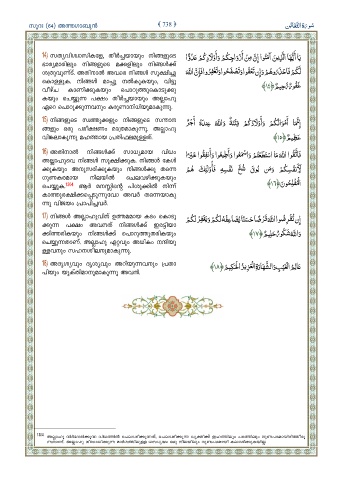 സൂറ: (64) അത്തഗാബുൻ ﴾ 738 ﴿ سورة التغابن
14) സത്യവിശ്വാസികളേ, തീർച്ചയായും നിങ്ങളുടെ
ഭാര്യമാരിലും നിങ്ങളുടെ മക്കളിലും നിങ്ങൾക്ക്
ശത്രുവുണ്ട്. അതിനാൽ അവരെ നിങ്ങൾ സൂക്ഷിച്ചു
കൊള്ളുക. നിങ്ങൾ മാപ്പു നൽകുകയും, വിട്ടു
വീഴ്ച കാണിക്കുകയും പൊറുത്തുകൊടുക്കു
കയും ചെയ്യുന്ന പക്ഷം തീർച്ചയായും അല്ലാഹു
ഏറെ പൊറുക്കുന്നവനും കരുണാനിധിയുമാകുന്നു.
يَا أَيُّهَا الَّذِينَ آمَنُوا إِنَّ مِنْ أَزْوَاجِكُمْ وَأَوْلَادِكُمْ عَدُوًّا
لَّكُمْ فَاحْذَرُوهُمْ وَإِن تَعْفُوا وَتَصْفَحُوا وَتَغْفِرُوا فَإِنَّ اللَّهَ
غَفُورٌ رَّحِيمٌ ﴿١٤﴾
15) നിങ്ങളുടെ സ്വത്തുക്കളും നിങ്ങളുടെ സന്താന
ങ്ങളും ഒരു പരീക്ഷണം മാത്രമാകുന്നു. അല്ലാഹു
വിങ്കലാകുന്നു മഹത്തായ പ്രതിഫലമുള്ളത്.
إِنَّمَا أَمْوَالُكُمْ وَأَوْلَادُكُمْ فِتْنَةٌ وَاللَّهُ عِندَهُ أَجْرٌ
عَظِيمٌ ﴿١٥﴾
16) അതിനാൽ നിങ്ങൾക്ക് സാധ്യമായ വിധം
അല്ലാഹുവെ നിങ്ങൾ സൂക്ഷിക്കുക. നിങ്ങൾ കേൾ
ക്കുകയും അനുസരിക്കുകയും നിങ്ങൾക്കു തന്നെ
ഗുണകരമായ നിലയിൽ ചെലവഴിക്കുകയും
ചെയ്യുക. ആർ മനസ്സിന്റെ പിശുക്കിൽ നിന്ന്
കാത്തുരക്ഷിക്കപ്പെടുന്നുവോ അവർ തന്നെയാകു
ന്നു വിജയം പ്രാപിച്ചവർ.
فَاتَّقُوا اللَّهَ مَا اسْتَطَعْتُمْ وَاسْمَعُوا وَأَطِيعُوا وَأَنفِقُوا خَيْرًا
لِّأَنفُسِكُمْ وَمَن يُوقَ شُحَّ نَفْسِهِ فَأُولَٰئِكَ هُمُ
الْمُفْلِحُونَ ﴿١٦﴾
17) നിങ്ങൾ അല്ലാഹുവിന് ഉത്തമമായ കടം കൊടു
ക്കുന്ന പക്ഷം അവനത് നിങ്ങൾക്ക് ഇരട്ടിയാ
ക്കിത്തരികയും നിങ്ങൾക്ക് പൊറുത്തുതരികയും
ചെയ്യുന്നതാണ്. അല്ലാഹു ഏറ്റവും അധികം നന്ദിയു
ള്ളവനും സഹനശീലനുമാകുന്നു.
إِن تُقْرِضُوا اللَّهَ قَرْضًا حَسَنًا يُضَاعِفْهُ لَكُمْ وَيَغْفِرْ لَكُمْ
وَاللَّهُ شَكُورٌ حَلِيمٌ ﴿١٧﴾
18) അദൃശ്യവും ദൃശ്യവും അറിയുന്നവനും പ്രതാ
പിയും യുക്തിമാനുമാകുന്നു അവൻ.
عَالِمُ الْغَيْبِ وَالشَّهَادَةِ الْعَزِيزُ الْحَكِيمُ ﴿١٨﴾